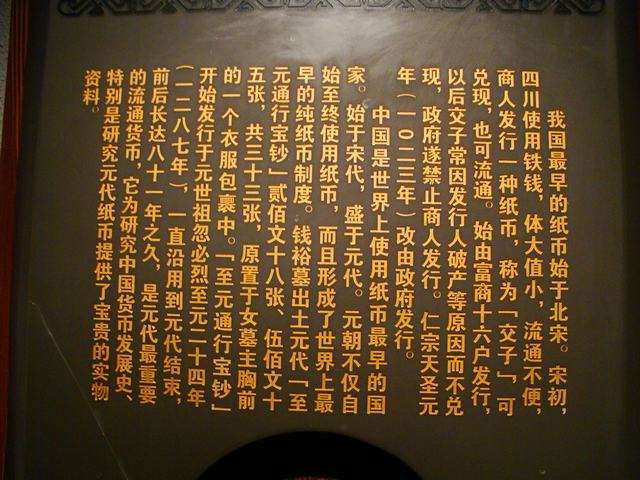 我国最早的纸币始于北宋。宋初，
四川使用铁钱，体大值小，流通不便，
商人发行一种纸币，称为「交子」，可
兑现，也可流通。始由富商十六户发行，
以后交子常因发行人破产等原因而不兑
现，政府遂禁止商人发行。仁宗天圣元
年（一〇二三年）改由政府发行。
中国是世界上使用纸币最早的国
家。始于宋代，盛于元代。元朝不仅自
始至终使用纸币，而且形成了世界上最
早的纯纸币制度。钱裕墓出土元代「至
元通行宝钞」贰佰文十八张、伍佰文十
五张，共三十三张，原置于女墓主胸前
的一个衣服包裹中。「至元通行宝钞」
开始发行于元世祖忽必烈至元二十四年
（一二八七年），一直沿用到元代结束，
前后长达八十一年之久，是元代最重要
的流通货币，它为研究中国货币发展史、
特别是研究元代纸币提供了宝贵的实物
资料。